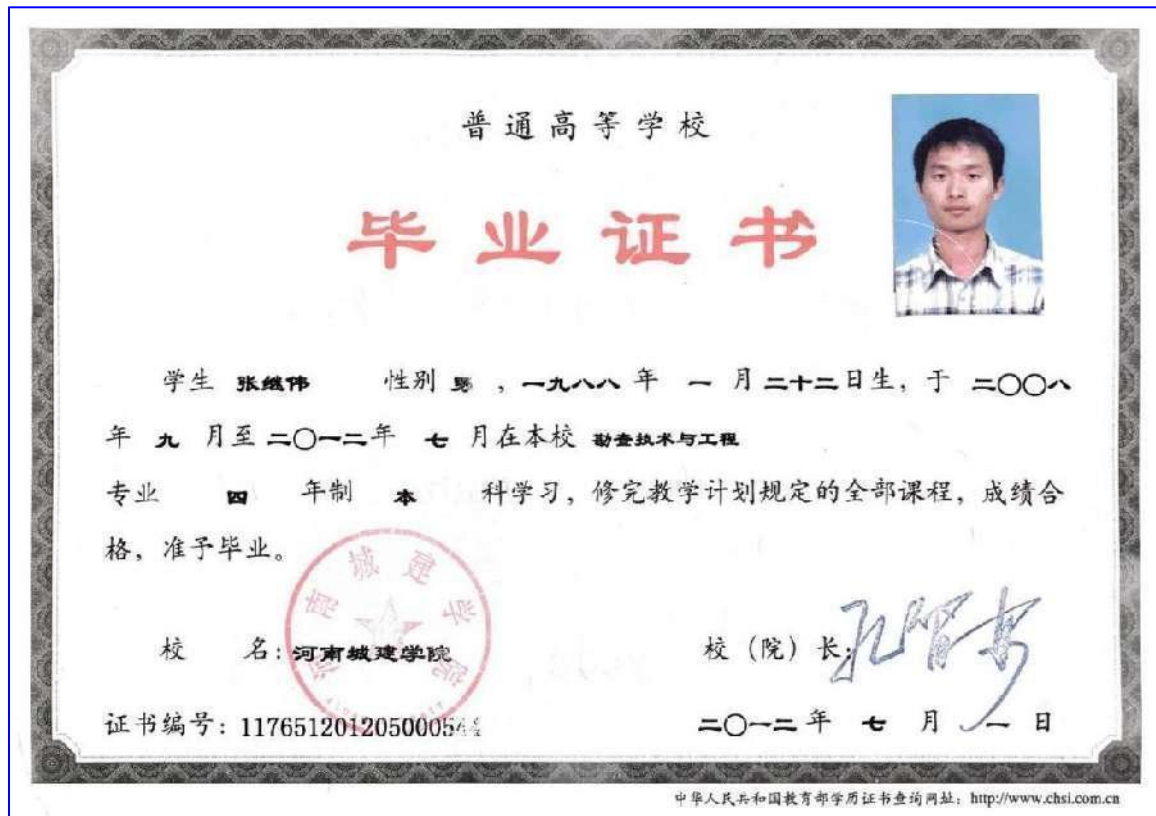 普通高等学校
毕业证书
学生 张继伟 性别 男 ,一九八八 年 一 月 二十二日生,于 二〇〇八
年 九 月至 二〇一二年 七 月在本校 勘查技术与工程
专业 四 年制 本 科学习,修完教学计划规定的全部课程,成绩合
格,准予毕业。
河南城建学院
校 名:河南城建学院 校(院)长:
证书编号:117651201205000544 二〇一二 年 七 月 一 日
中华人民共和国教育部学历证书查询网址:http://www.chsi.com.cn